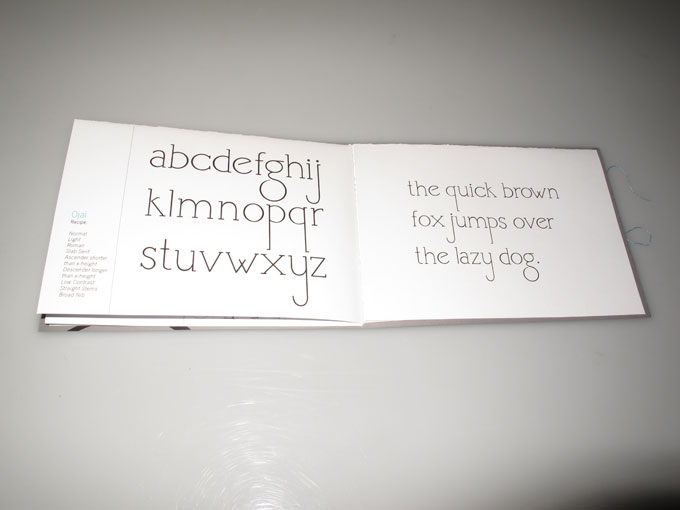 Ojai
Recipe:
Normal
Light
Roman
Slab Serif
Ascender shorter
than x-height
Descender longer
than x-height
Low Contrast
Straight Stems
Broad Nib
abcdefghij
klmnopqr
stuvwxyz
the quick brown
fox jumps over
the lazy dog.